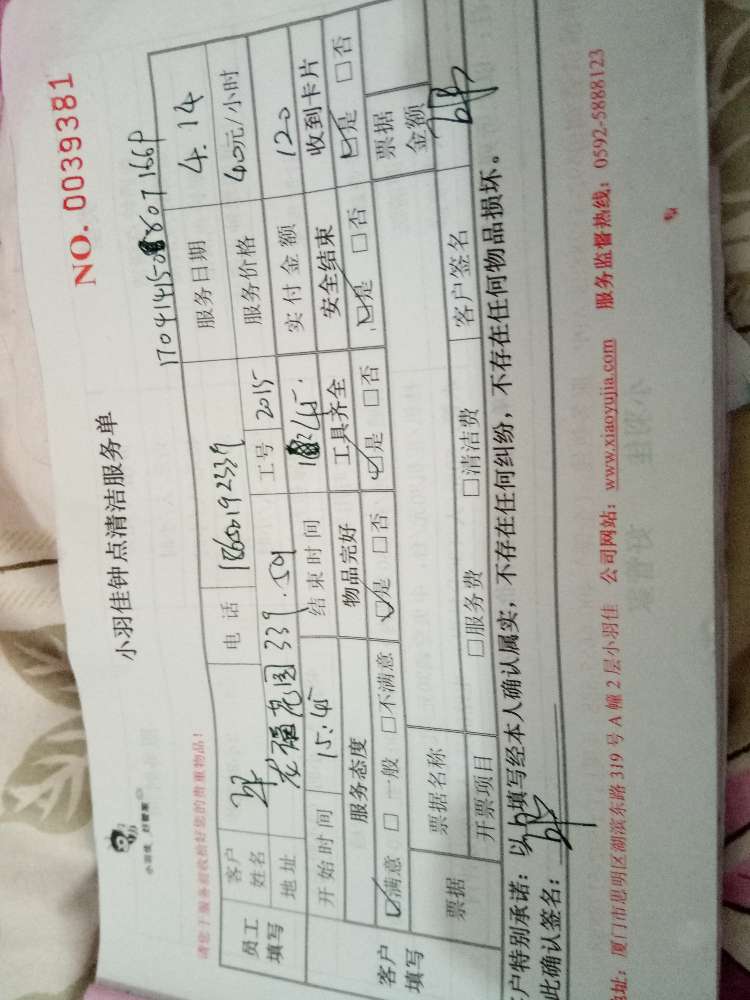 小羽佳 好管家
小羽佳钟点清洁服务单
NO. 0039381
请您于服务前收拾好您的贵重物品！
员工填写 客户姓名 电话 服务日期 4.14
地址 339.504 工号 2015 服务价格 40元/小时
开始时间 15:45 结束时间 实付金额 120
客户填写 服务态度 物品完好 工具齐全 安全结束 收到卡片
☑满意 □一般 □不满意 ☑是 □否 ☑是 □否 ☑是 □否 ☑是 □否
票据 票据名称 票据金额
开票项目 □服务费 □清洁费 客户签名
户特别承诺：以上填写经本人确认属实，不存在任何纠纷，不存在任何物品损坏。
此确认签名：
地址：厦门市思明区湖滨东路 319 号 A 幢 2 层小羽佳 公司网站：www.xiaoyujia.com 服务监督热线：0592-5888123